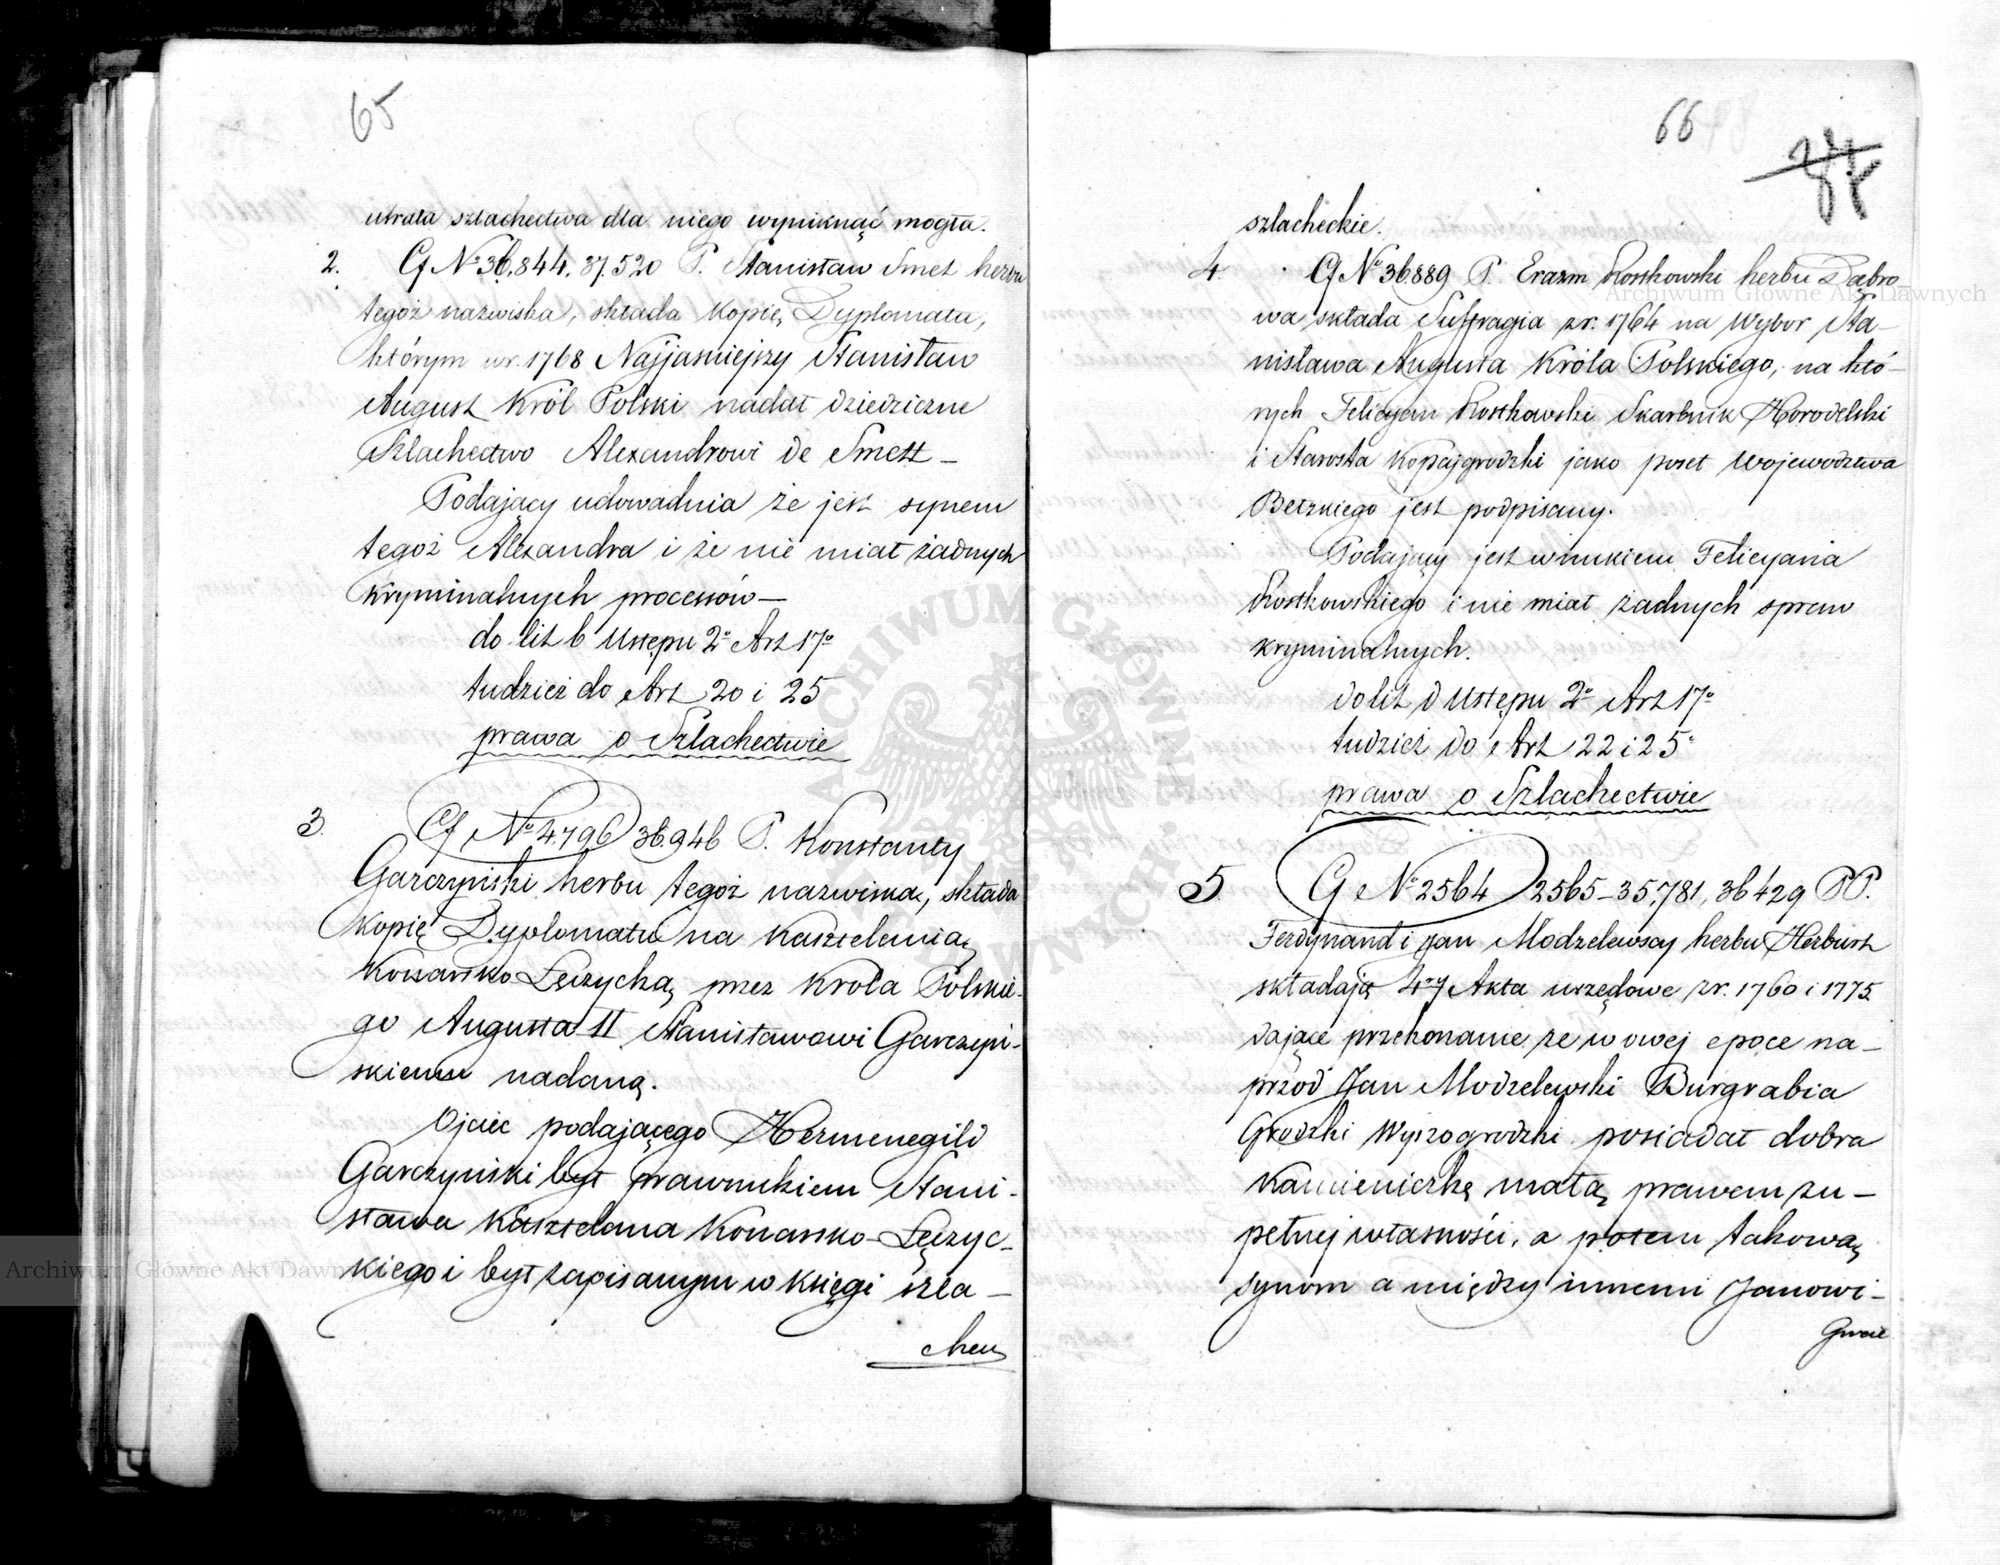 65
utrata szlachectwa dla niego wyniknąć mogła.
2. Cf No 36,844. 37.520 P. Stanisław Smet herbu
tegoż nazwiska, składa kopię Dyplomatu,
którym w r. 1768 Najjaśniejszy Stanisław
August Król Polski nadał dziedziczne
Szlachectwo Alexandrowi de Smett –
Podający udowadnia że jest synem
tegoż Alexandra i że nie miał żadnych
kryminalnych processów –
do lit b Ustępu 2o Art 17o
tudzież do Art 20 i 25
prawa o Szlachectwie
3. Cf No 4796 36.946 P. Konstanty
Garczyński herbu tegoż nazwiska, składa
kopię Dyplomatu na kasztelanią
Konarsko Łęczycką przez Króla Polskie-
go Augusta II Stanisławowi Garczyń-
skiemu nadaną.
Ojciec podającego Hermenegild
Garczyński był prawnukiem Stani-
sława Kasztelana Konarsko-Łęczyc-
kiego i był zapisanym w księgi szla-
checkie
66
szlacheckie.
4. Cf No 36889 P. Erazm Rostkowski herbu Dąbro-
wa składa Suffragia z r. 1764 na Wybor Sta-
nisława Augusta Króla Polskiego, na któ-
rych Felicyan Rostkowski Skarbnik Horodelski
i Starosta Kopajgrodzki jako poseł Województwa
Bełzkiego jest podpisany.
Podający jest wnukiem Felicyana
Rostkowskiego i nie miał żadnych spraw
kryminalnych.
do lit d Ustępu 2o Art 17o
tudzież do Art 22 i 25o
prawa o Szlachectwie
5. Cf No 2564 2565–35,781, 36429 PP.
Ferdynand i Jan Modzelewscy herbu Herburt
składają 4ry Akta urzędowe z r. 1760 i 1775
dające przekonanie, że w owej epoce na-
przód Jan Modzelewski Burgrabia
Grodzki Wyszogrodzki posiadał dobra
Kamieniczkę małą prawem zu-
pełnej własności, a potem takową
synom a między innemi Janowi –
Archiwum Główne Akt Dawnych
Archiwum Główne Akt Dawnych
ARCHIWUM GŁÓWNE AKT DAWNYCH